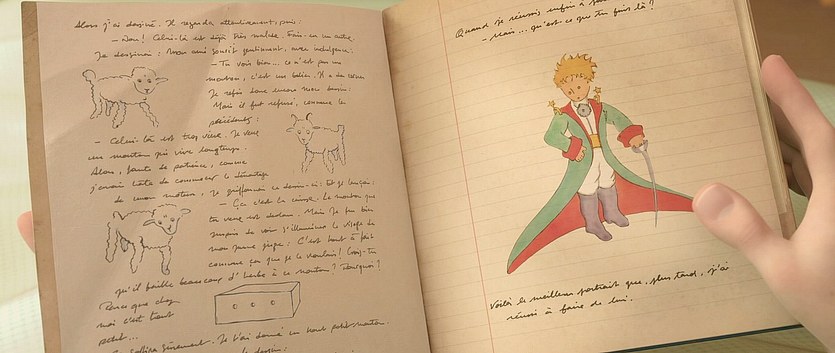 Alors j'ai dessiné. Il regarda attentivement, puis :
- Non ! Celui-là est déjà très malade. Fais-en un autre.
Je dessinai : Mon ami sourit gentiment, avec indulgence :
- Tu vois bien... ce n'est pas un
mouton, c'est un bélier. Il a des cornes
Je refis donc encore mon dessin :
Mais il fut refusé, comme les
précédents :
- Celui-là est trop vieux. Je veux
un mouton qui vive longtemps.
Alors, faute de patience, comme
j'avais hâte de commencer le démontage
de mon moteur, je griffonnai ce dessin-ci : Et je lançai :
- Ça c'est la caisse. Le mouton que
tu veux est dedans. Mais je fus bien
surpris de voir s'illuminer le visage de
mon jeune juge : C'est tout à fait
comme ça que je le voulais ! Crois-tu
qu'il faille beaucoup d'herbe à ce mouton ? Pourquoi ?
Parce que chez
moi c'est tout
petit...
suffira sûrement. Je t'ai donné un tout petit mouton.
le dessin :
Quand je réussis enfin à
- Mais... qu'est-ce que tu fais là ?
Voilà le meilleur portrait que, plus tard, j'ai
réussi à faire de lui.